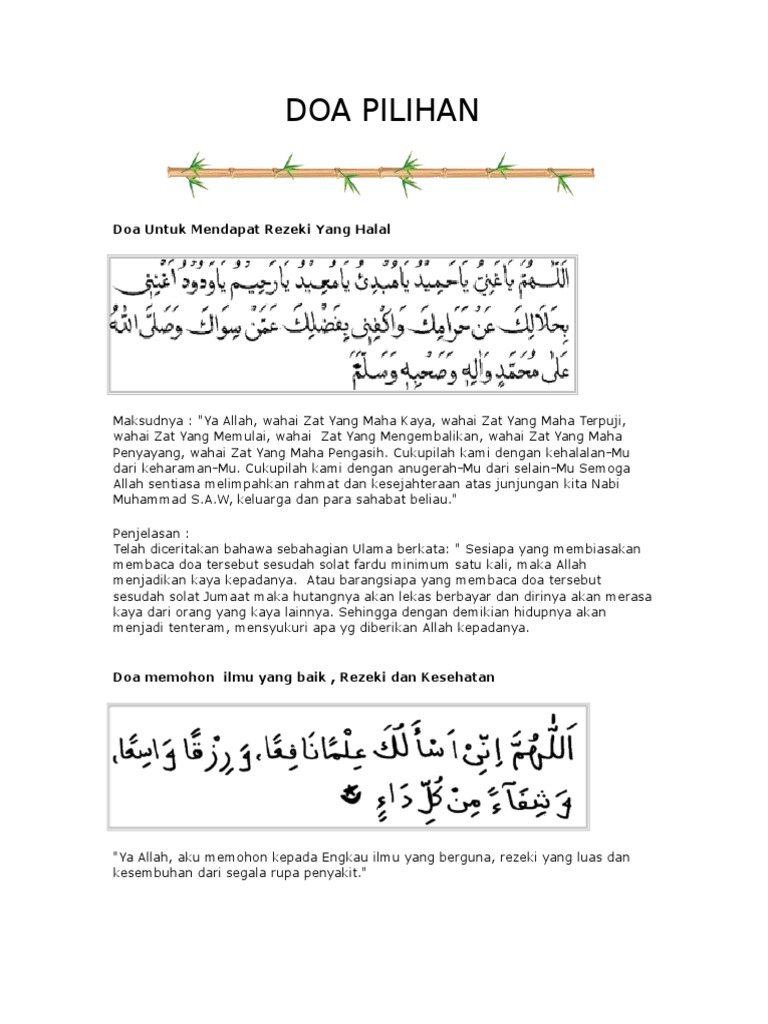 DOA PILIHAN
Doa Untuk Mendapat Rezeki Yang Halal
اَللّٰهُمَّ يَاغَنِيُّ يَاحَمِيْدُ يَامُبْدِئُ يَامُعِيْدُ يَارَحِيْمُ يَاوَدُوْدُ اَغْنِنِيْ
بِحَلَالِكَ عَنْ حَرَامِكَ وَاكْفِنِيْ بِفَضْلِكَ عَمَّنْ سِوَاكَ وَصَلَّى اللهُ
عَلٰى مُحَمَّدٍ وَاٰلِهٖ وَصَحْبِهٖ وَسَلَّمَ
Maksudnya : "Ya Allah, wahai Zat Yang Maha Kaya, wahai Zat Yang Maha Terpuji,
wahai Zat Yang Memulai, wahai  Zat Yang Mengembalikan, wahai Zat Yang Maha
Penyayang, wahai Zat Yang Maha Pengasih. Cukupilah kami dengan kehalalan-Mu
dari keharaman-Mu. Cukupilah kami dengan anugerah-Mu dari selain-Mu Semoga
Allah sentiasa melimpahkan rahmat dan kesejahteraan atas junjungan kita Nabi
Muhammad S.A.W, keluarga dan para sahabat beliau."
Penjelasan :
Telah diceritakan bahawa sebahagian Ulama berkata: " Sesiapa yang membiasakan
membaca doa tersebut sesudah solat fardu minimum satu kali, maka Allah
menjadikan kaya kepadanya.  Atau barangsiapa yang membaca doa tersebut
sesudah solat Jumaat maka hutangnya akan lekas berbayar dan dirinya akan merasa
kaya dari orang yang kaya lainnya. Sehingga dengan demikian hidupnya akan
menjadi tenteram, mensyukuri apa yg diberikan Allah kepadanya.
Doa memohon  ilmu yang baik , Rezeki dan Kesehatan
اَللّٰهُمَّ اِنِّيْ اَسْأَلُكَ عِلْمًا نَافِعًا، وَرِزْقًا وَاسِعًا،
وَشِفَآءً مِنْ كُلِّ دَاءٍ
"Ya Allah, aku memohon kepada Engkau ilmu yang berguna, rezeki yang luas dan
kesembuhan dari segala rupa penyakit."